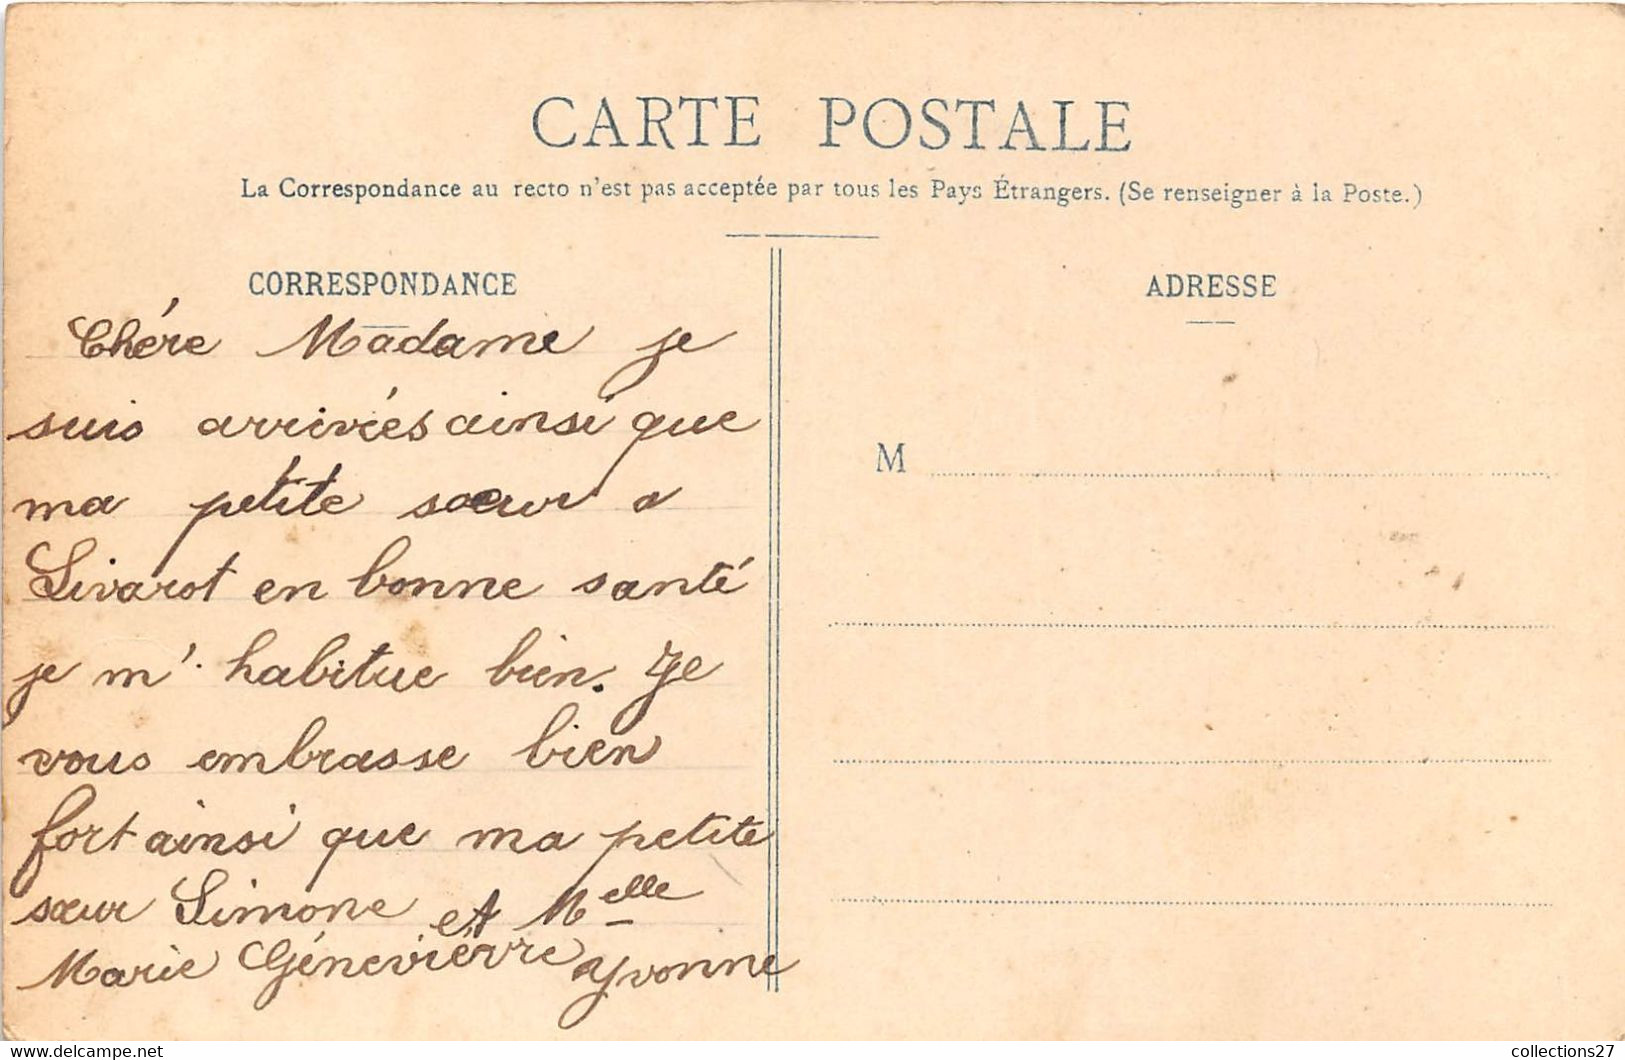 CARTE POSTALE
La Correspondance au recto n'est pas acceptée par tous les Pays Étrangers. (Se renseigner à la Poste.)
CORRESPONDANCE
Chére Madame je
suis arrivées ainsi que
ma petite sœur a
Livarot en bonne santé
je m'habitue bien. Je
vous embrasse bien
fort ainsi que ma petite
sœur Simone et Melle
Marie Géneviévre Yvonne
ADRESSE
M
collections27